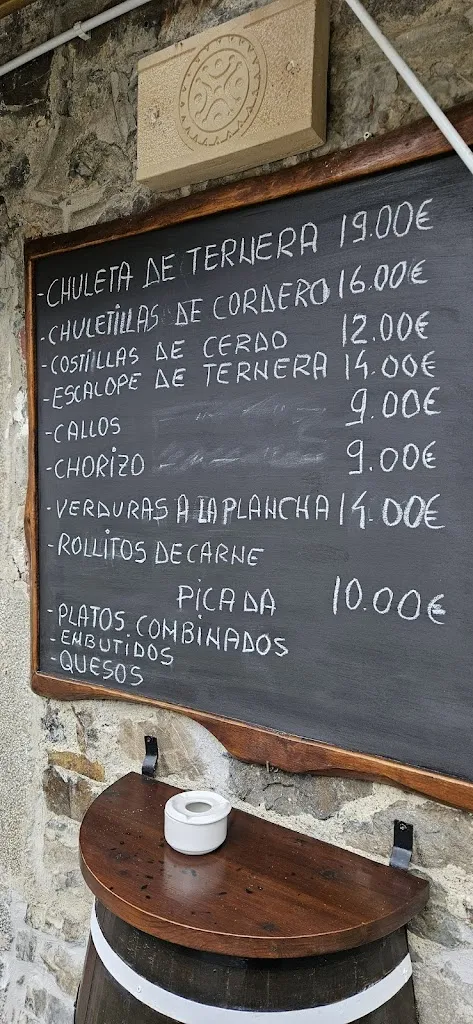 -CHULETA DE TERNERA 19.00€
-CHULETILLAS DE CORDERO 16.00€
-COSTILLAS DE CERDO 12.00€
-ESCALOPE DE TERNERA 14.00€
-CALLOS 9.00€
-CHORIZO 9.00€
-VERDURAS A LA PLANCHA 14.00€
-ROLLITOS DE CARNE
PICADA 10.00€
-PLATOS COMBINADOS
-EMBUTIDOS
-QUESOS